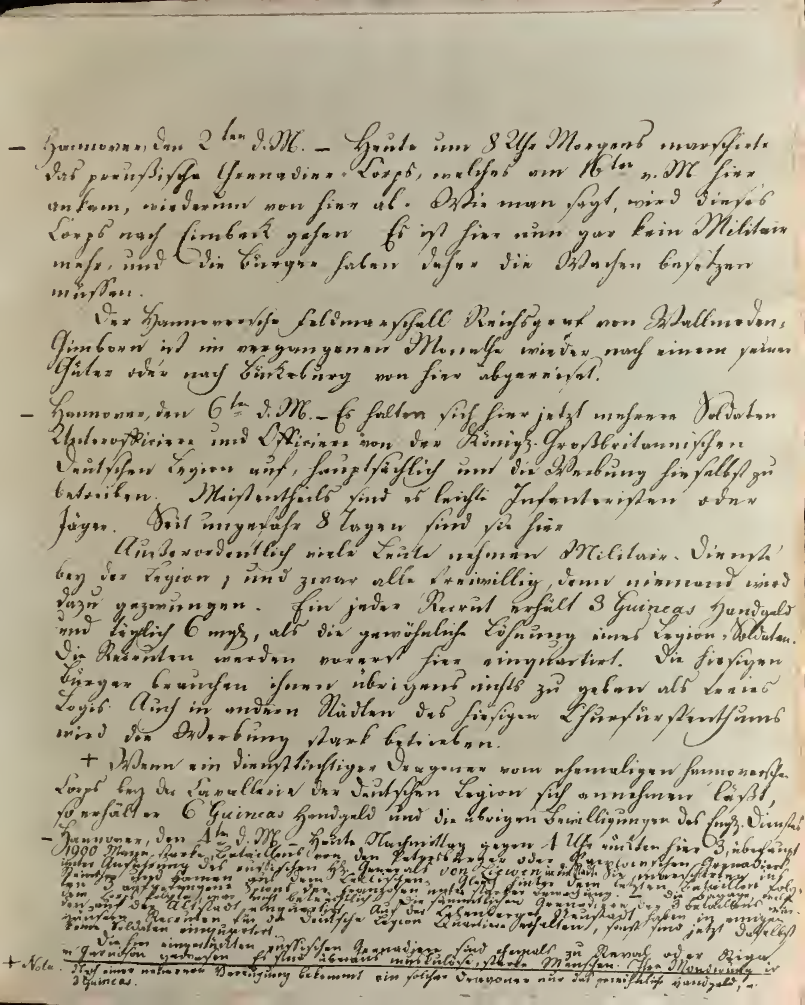 — Hannover, den 2ten d. M. — Heute um 8 Uhr Morgens marschirte
das preußische Grenadier-Corps, welches am 16ten v. M hier
ankam, wiederum von hier ab. Wie man sagt, wird dieses
Corps nach Eimbeck gehen Es ist hier nun gar kein Militair
mehr, und die Bürger haben daher die Wachen besetzen
müssen.
Der Hannoversche Feldmarschall Reichsgraf von Wallmoden-
Gimborn ist im vergangenen Monathe wieder nach einem seiner
Güter oder nach Bückeburg von hier abgereiset.
— Hannover, den 6ten d. M. — Es halten sich hier jetzt mehrere Soldaten
Unterofficiere und Officiere von der Königl. Großbritannischen
Deutschen Legion auf, hauptsächlich um die Werbung hieselbst zu
betreiben. Meistentheils sind es leichte Infanteristen oder
Jäger. Seit ungefähr 8 Tagen sind sie hier
Außerordentlich viele Leute nehmen Militair-Dienste
bey der Legion, und zwar alle freiwillig, denn niemand wird
dazu gezwungen. Ein jeder Recrut erhält 3 Guineas Handgeld
und täglich 6 mgl, als die gewöhnliche Löhnung eines Legion-Soldaten.
Die Recruten werden vorerst hier einquartirt. Die hiesigen
Bürger brauchen ihnen übrigens nichts zu geben als freies
Logis. Auch in andern Städten des hiesigen Churfürstenthums
wird die Werbung stark betrieben.
+ Wenn ein diensttüchtiger Dragoner vom ehemaligen hannoversche
Corps bey der Cavallerie der deutschen Legion sich annehmen läßt,
so erhält er 6 Guineas Handgeld und die übrigen Bewilligungen des Engl. Dienstes
— Hannover, den 4ten d. M. — Heute Nachmittag gegen 1 Uhr rückten hier 3, überhaupt
1900 Mann starke, Bataillons von den Petersburger oder Pawlowschen Grenadiers
unter Anführung des russischen Generals von
den auf der Altstadt einquartirt. Auf der Calenberger Neustadt haben in einigen
Häusern Recruten für die Deutsche Legion Quartier erhalten, sonst sind jetzt daselbst
keine Soldaten einquartirt.
Die hier eingerückten russischen Grenadiere sind ehemals zu Reval oder Riga
in Garnison gewesen Es sind überaus musculöse, starke Menschen. Ihre Mondirung ist
+ Nota. Nach einer neueren Verfügung bekommt ein solcher Dragoner nur das gewöhnliche Handgeld,
3 Guineas.